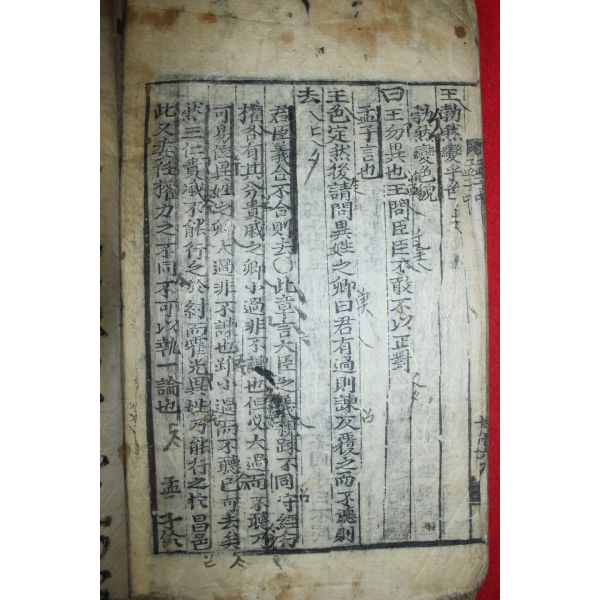 王勃然變乎色
勃然變色貌
曰王勿異也王問臣臣不敢不以正對
孟子言也
王色定然後請問異姓之卿曰君有過則諫反覆之而不聽則
去
君臣義合不合則去○此章言大臣之義親疎不同守經行
權各有其分貴戚之卿小過非不諫也但必大過而不聽乃
可易位異姓之卿大過非不諫也雖小過而不聽已可去矣
然三仁貴戚不能行之於紂而霍光異姓乃能行之於昌邑
此又委任權力之不同不可以執一論也
孟子